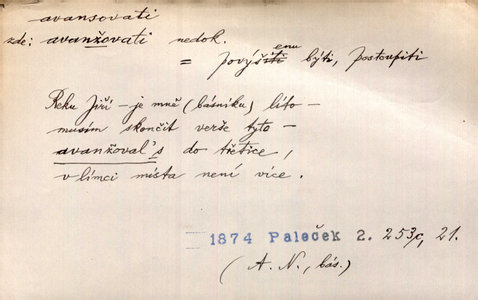 avansovati
zde: avanžovati nedok.
= povýšenu býti, postoupiti
Reku Jiří – je mně (básníku) líto –
musím skončit verše tyto –
avanžoval's do třetice,
v límci místa není více.
1874 Paleček 2. 253c, 21.
(A. N., bás.)